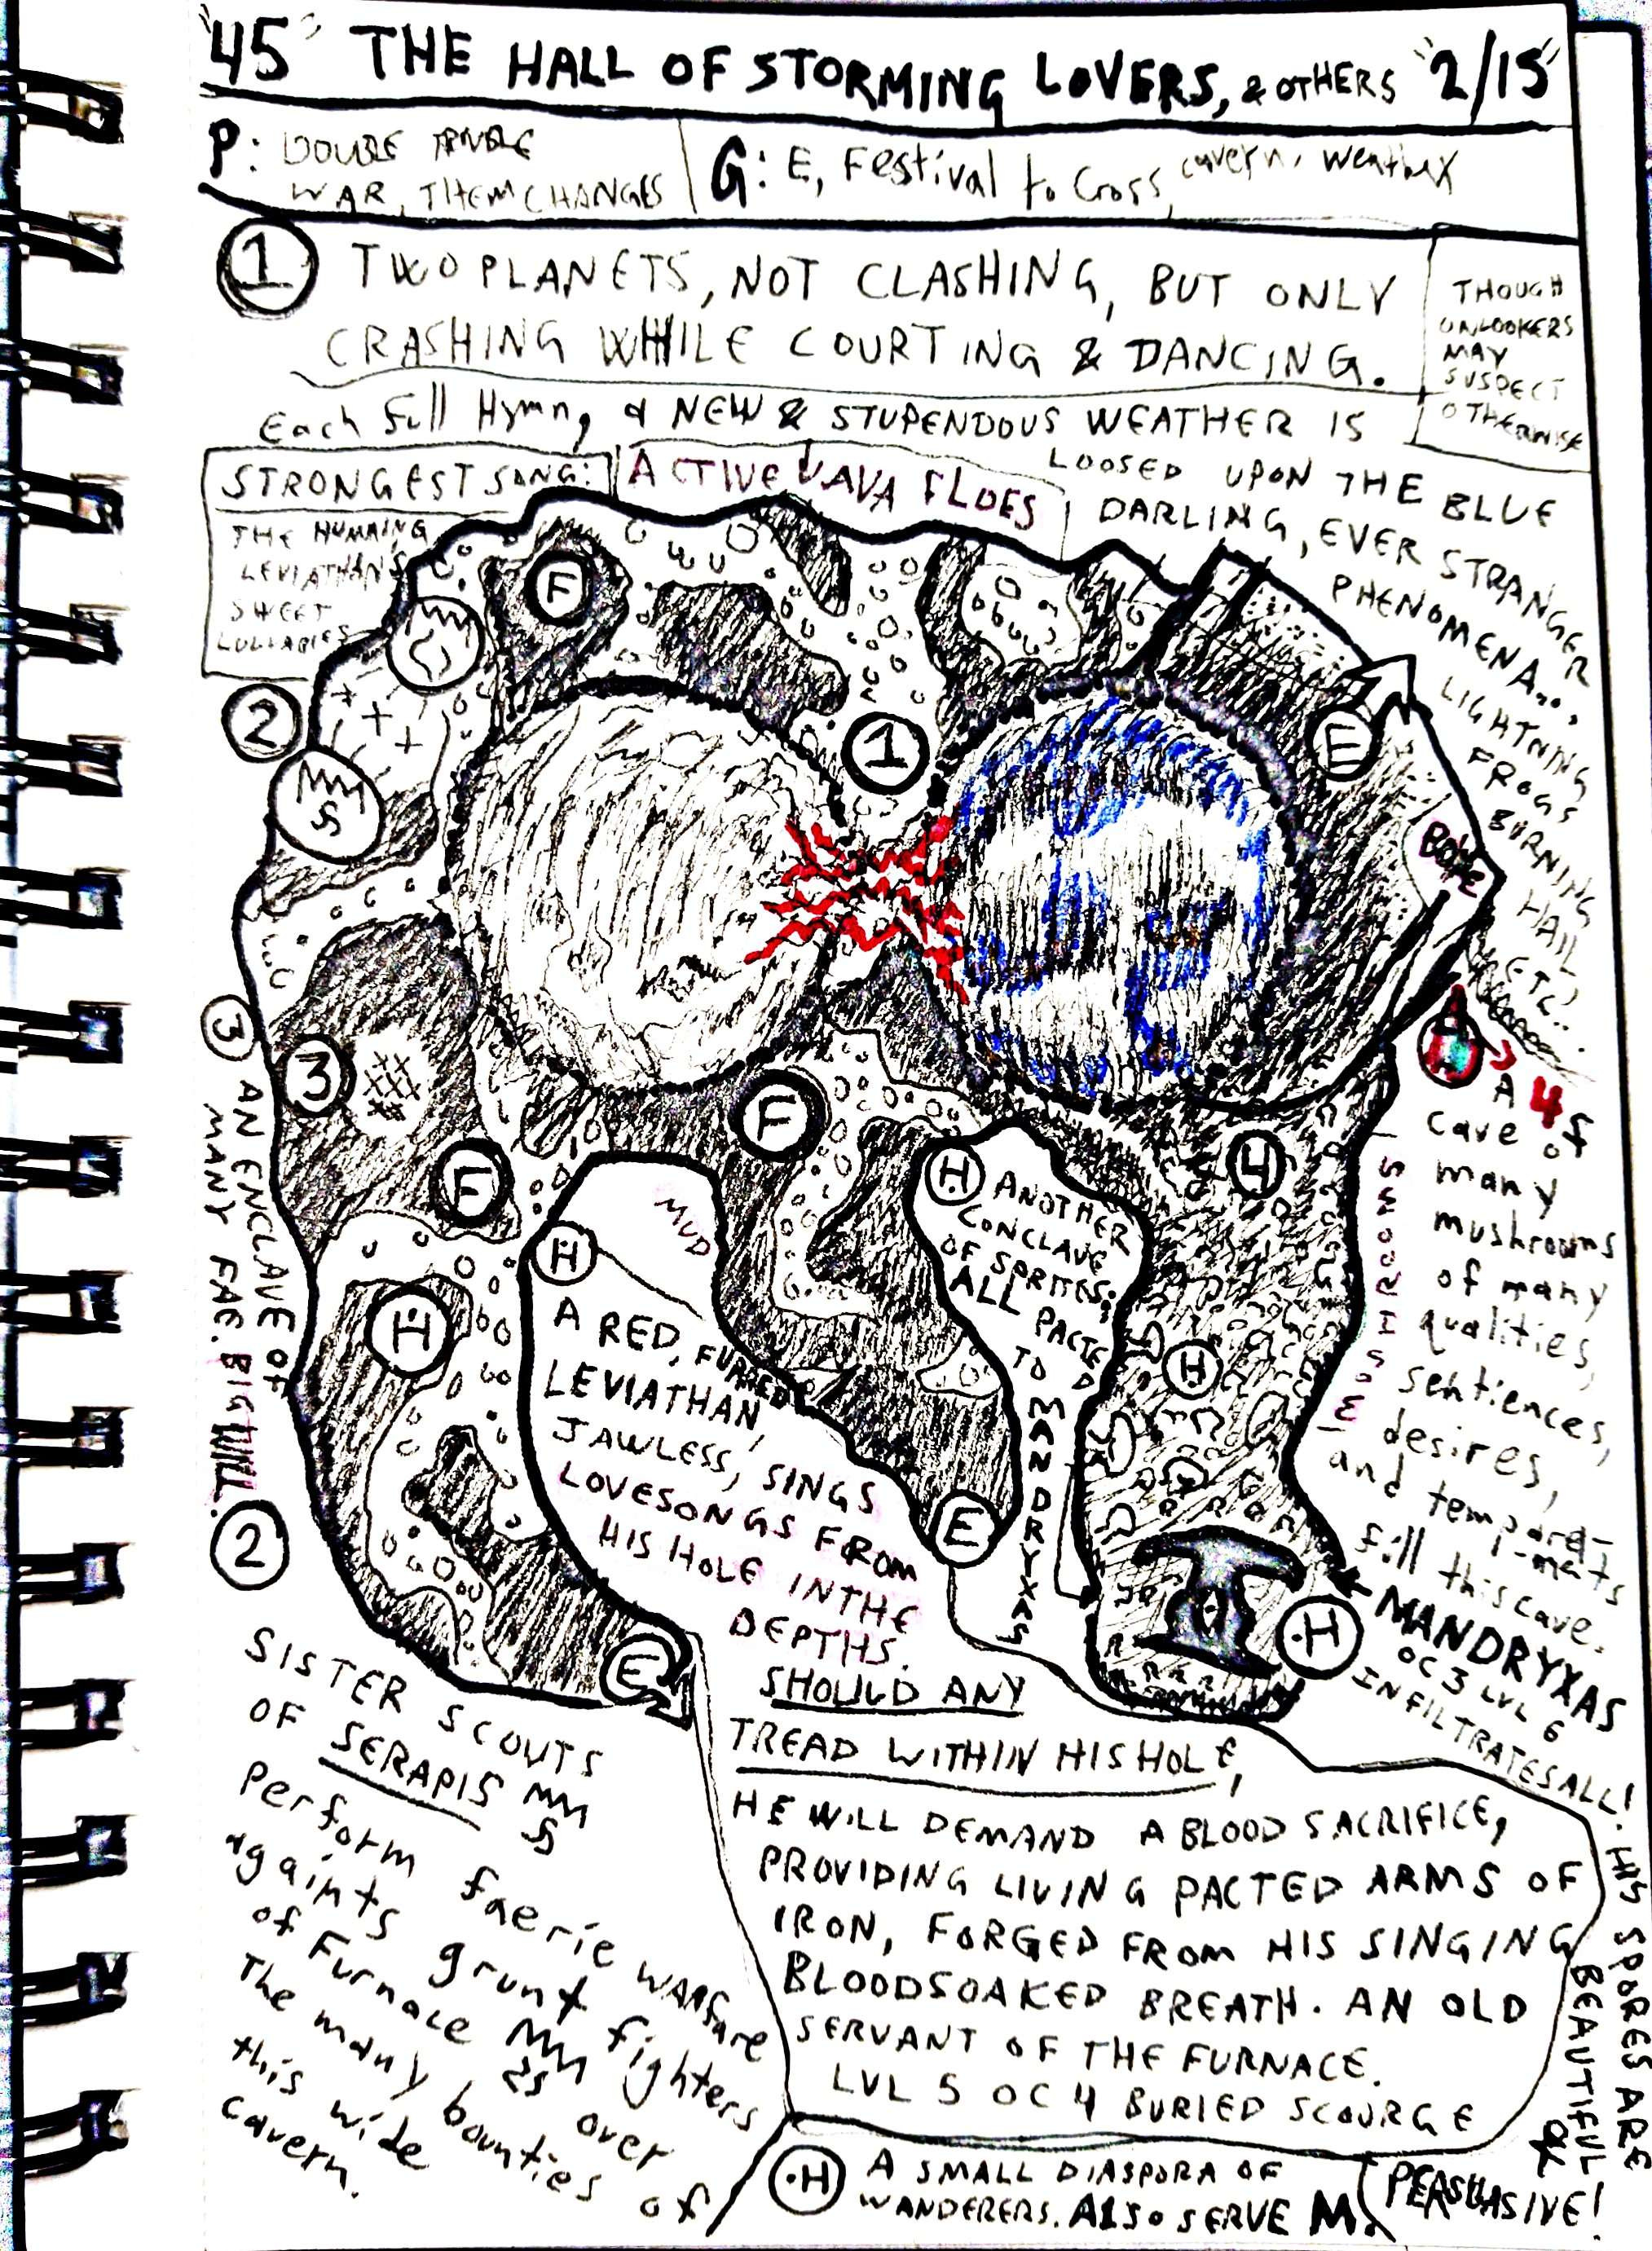 "45" THE HALL OF STORMING LOVERS, & OTHERS "2/15"
P: DOUBLE
WAR, THEM CHANGES
G: E, Festival to Cross, cavern, weather
1 TWO PLANETS, NOT CLASHING, BUT ONLY
CRASHING WHILE COURTING & DANCING.
THOUGH
ONLOOKERS
MAY
SUSPECT
OTHERWISE
Each full Hymn, a NEW & STUPENDOUS WEATHER IS
LOOSED UPON THE BLUE
DARLING, EVER STRANGER
PHENOMENA...
LIGHTNING
FROGS
BURNING
HAIL
ETC..
STRONGEST SONG:
THE HUMMING
LEVIATHAN'S
SWEET
LULLABIES
ACTIVE LAVA FLOES
F
1
E
2
3
F
F
H
H
MUD
E
4
H
E
H
3 AN ENCLAVE OF
MANY FAE. BIG
A 4
cave of
many
mushrooms
of many
qualities,
sentiences,
desires,
and tempora-
i-ments
fill this cave.
MUSHROOMS
H ANOTHER
CONCLAVE
OF SPRITES,
ALL PACTED
TO MANDRYXAS
A RED, FURRED
LEVIATHAN,
JAWLESS, SINGS
LOVESONGS FROM
HIS HOLE IN THE
DEPTHS.
SHOULD ANY
TREAD WITHIN HIS HOLE,
HE WILL DEMAND A BLOOD SACRIFICE,
PROVIDING LIVING PACTED ARMS OF
IRON, FORGED FROM HIS SINGING
BLOODSOAKED BREATH. AN OLD
SERVANT OF THE FURNACE.
LVL 5 OC 4 BURIED SCOURGE
MANDRYXAS
OC 3 LVL 6
INFILTRATES ALL!
HIS SPORES ARE
BEAUTIFUL
&
PERSUASIVE!
2
SISTER SCOUTS
OF SERAPIS
Perform faerie warfare
againts grunt fighters
of Furnace over
The many bounties of
this wide
cavern.
·H A SMALL DIASPORA OF
WANDERERS. ALSO SERVE M.